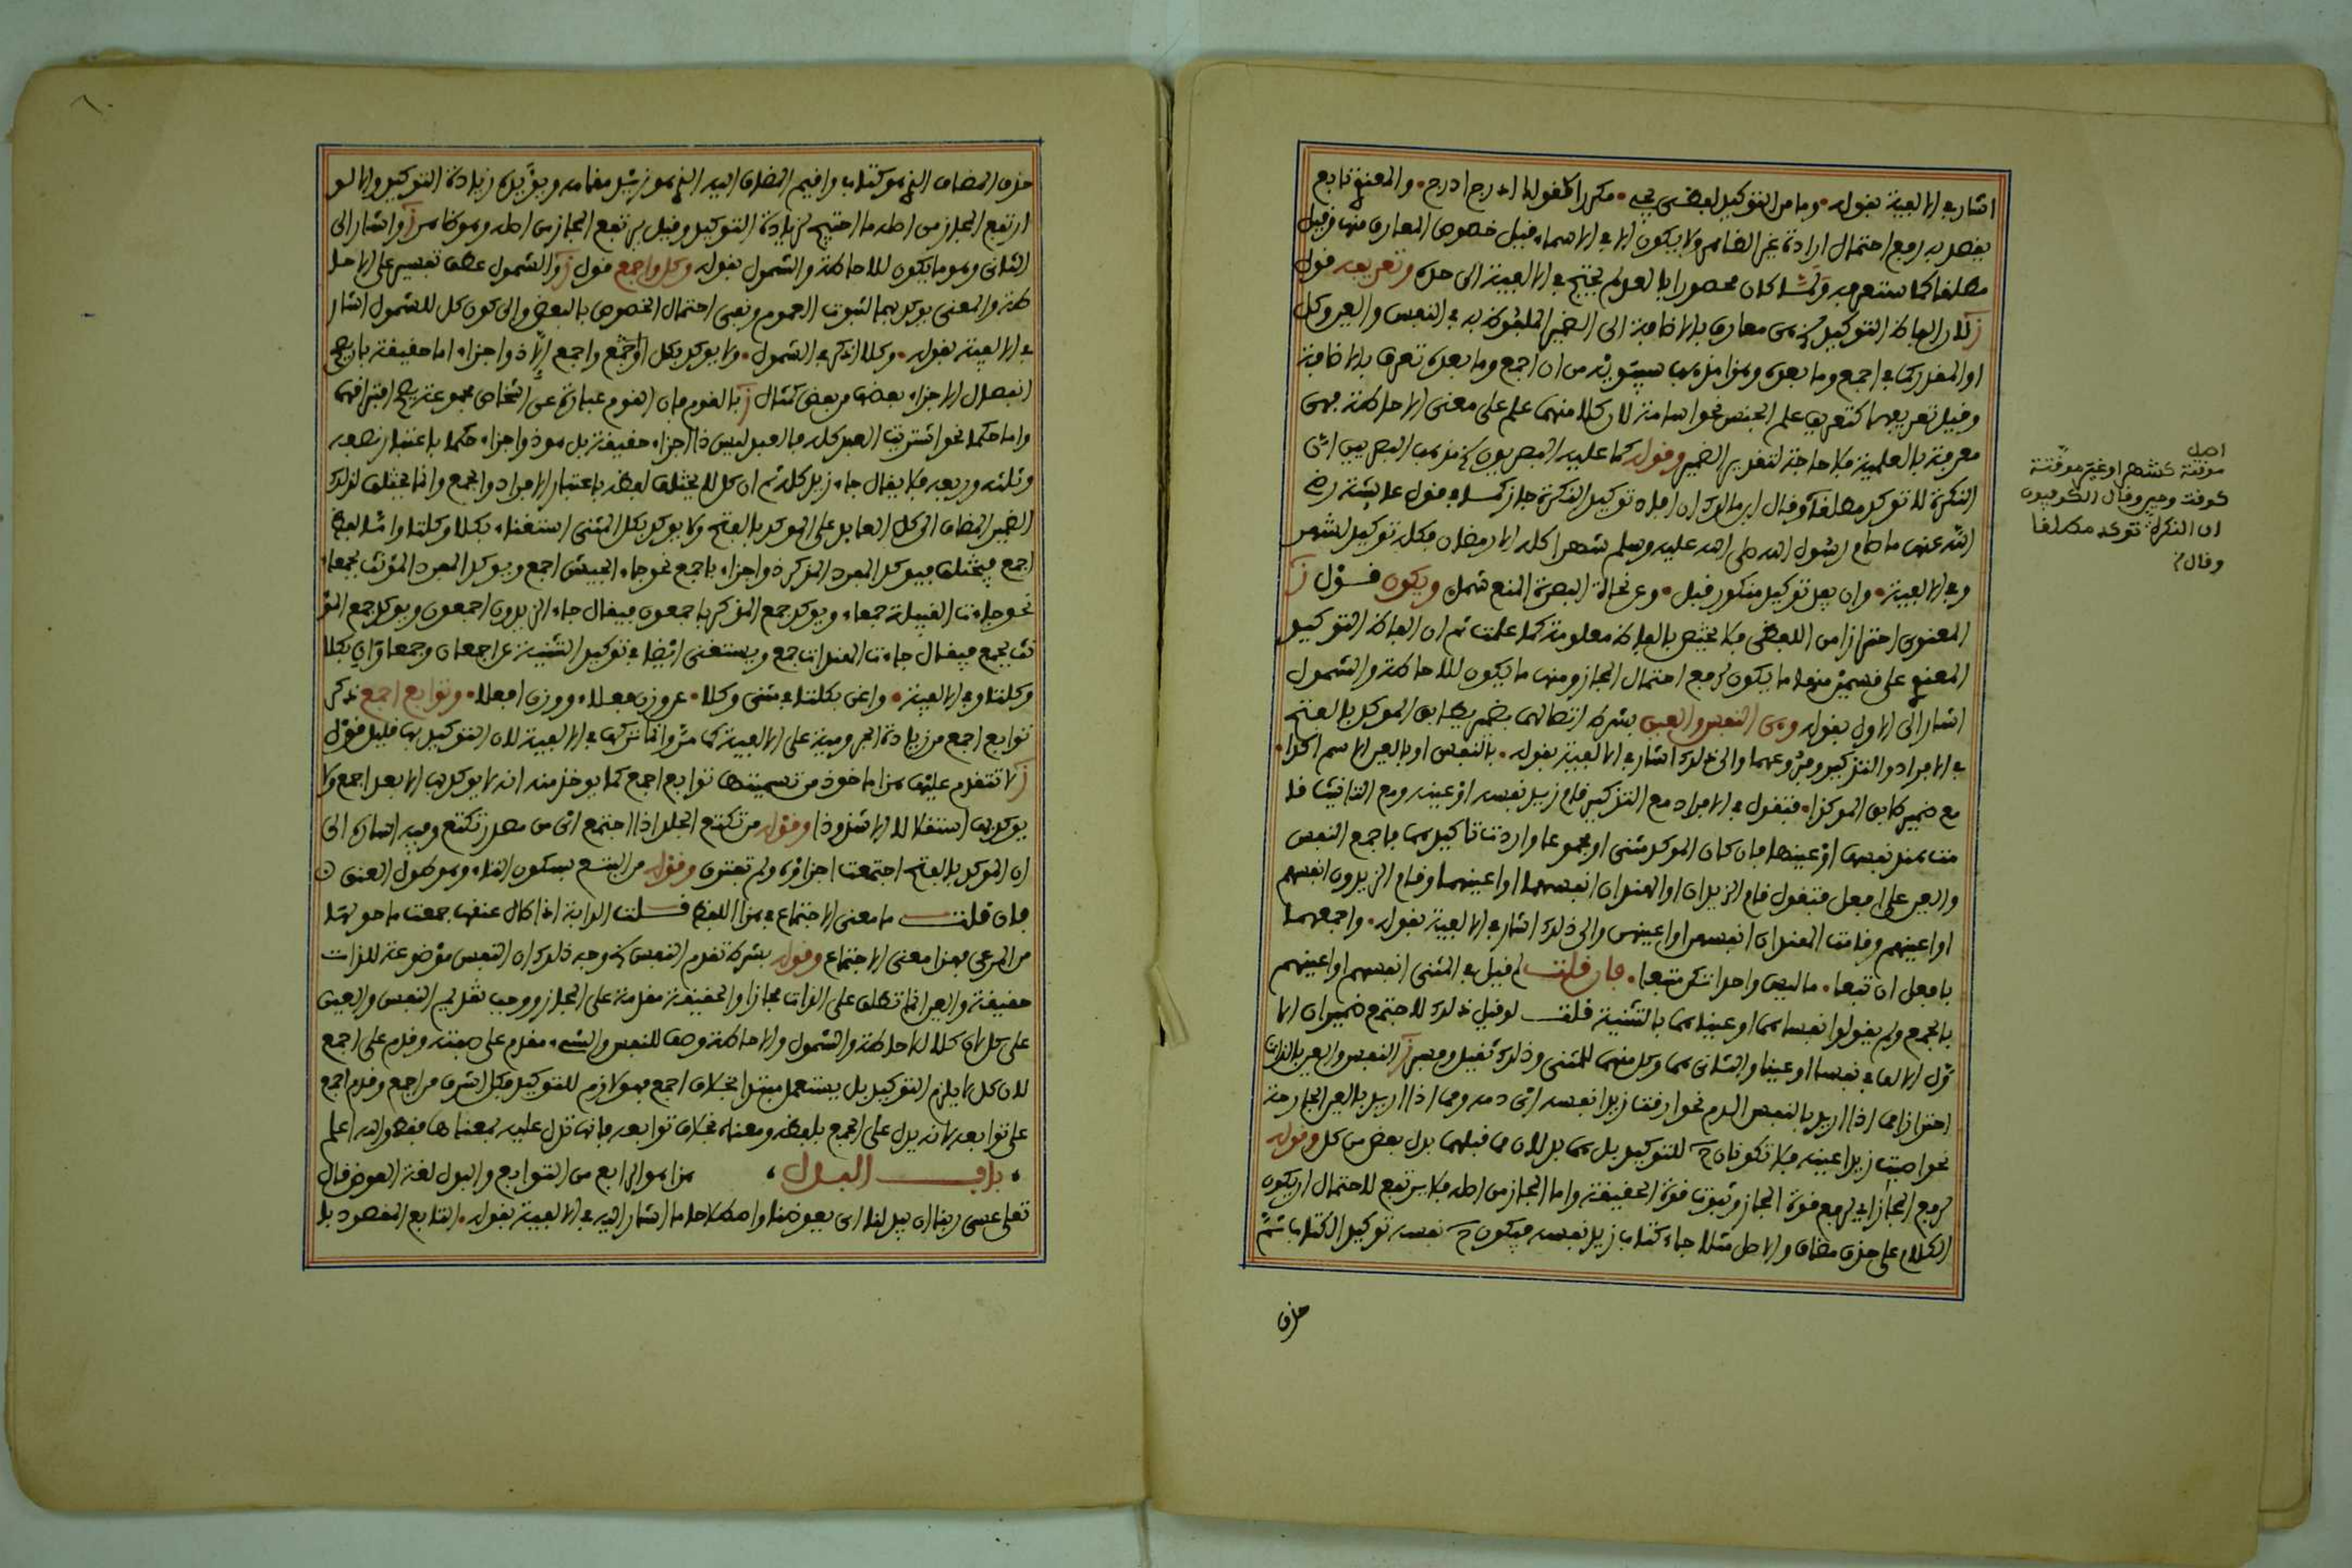 اشار في الالفية بقوله وما من التوكيد لفظي يجي مكررا كقولك ادرج ادرج والمعنوي تابع
يقصد به رفع احتمال ارادة غير الظاهر ولا يكون الا في الاسماء فبل خصوص المعارف منها وفيل
مطلفا كما ستعرفه كان محصورا بالعد لم يحتج في الالفية الى حده وتعريفه فول
ز لان الفاظ التوكيد معارف بالاضافة الى الضمير الملفوظ به في النفس والعين وكل
او المفدر كما في اجمع وما بعده وهذا مذهب سيبويه من ان اجمع وما بعده تعرف بالاضافة
وفيل تعريفهما كتعريف علم الجنس نحو اسامة لان كلا منهما علم على معنى الاحاطة فهي
معرفة بالعلمية فلا حاجة لتفدير الضمير وفوله كما عليه البصريون مذهب البصريين ان
النكرة لا توكد مطلفا وفال ابن مالك ان افاد توكيد النكرة جاز كفول عايشة رضي
الله عنها ما صام رسول الله صلى الله عليه وسلم شهرا كله الا رمضان فكله توكيد لشهر
وفي الالفية وان يفد توكيد منكور فبل وعن نحاة البصرة المنع شمل ويكون فول ز
المعنوي احترازا من اللفظي فلا يختص بالفاظ معلومة كما علمت ثم ان الفاظ التوكيد
المعنوي على فسمين منها ما يكون لرفع احتمال المجاز ومنها ما يكون للاحاطة والشمول
اشار الى الاول بفوله وهي النفس والعين بشرط اتصالهما بضمير يطابق الموكد بالفتح
في الافراد والتذكير وفروعهما والى ذلك اشار في الالفية بفوله بالنفس او بالعين الاسم اكدا
مع ضمير طابق الموكدا فتفول في الافراد مع التذكير فام زيد نفسه او عينه ومع التانيث فا
مت هند نفسها او عينها فان كان الموكد مثنى او مجموعا واردت تاكيدهما فاجمع النفس
والعين على افعل فتفول فام الزيدان او الهندان انفسهما او اعينهما وفام الزيدون انفسهم
او اعينهم وفامت الهندات انفسهن او اعينهن والى ذلك اشار في الالفية بفوله واجمعهما
بافعل ان تبعا ما ليس واحدا تكن متبعا فان فلت لم فيل في المثنى انفسهم او اعينهم
بالجمع ولم يفولوا نفساهما او عيناهما بالتثنية فلت لو فيل ذلك لاجتمع ضميران
الف في نفسا او عينا والثاني هما وكل منهما للمثنى وذلك ثفيل وفسر ز النفس والعين بالذات
احترازا مما اذا اريد بالنفس الدم نحو ارفت زيدا نفسه اي دمه ومما اذا اريد بالعين الجارحة
نحو اصبت زيدا عينه فلا تكونان للتوكيد بل هما بدلان مما فبلهما بدل بعض من كل وفوله
لرفع المجاز اي لرفع فوة المجاز وثبوت فوة الحفيفة واما المجاز من اصله فلا يرتفع لاحتمال ان يكون
الكلام على حذف مضاف والاصل مثلا جاء كتاب زيد نفسه فيكون نفسه توكيدا لكتاب ثم
حذف
اصل
موفتة كشهر او غير موفتة
كوفت وحين وفال الكوفيون
ان النكرة توكد مطلفا
وفال
حذف المضاف الذي هو كتاب وافيم المضاف اليه الذي هو زيد مفامه ويؤيده زيادة التوكيد والا لو
ارتفع المجاز من اصله ما احتيج لزيادة التوكيد وفيل يرتفع المجاز من اصله وهو ظاهر ز واشار الى
الثاني وهو ما يكون للاحاطة والشمول بفوله وكل واجمع فول ز والشمول عطف تفسير على الاحا
طة والمعنى يوكد بهما لثبوت العموم ونفي احتمال الخصوص بالبعض والى كون كل للشمول اشار
في الالفية بفوله وكلا اذكر في الشمول ولا يوكد بكل او اجمع الا ذو اجزاء اما حفيفة بان يصح
انفصال الاجزاء بعضها من بعض كمثال ز بالفوم فان الفوم عبارة عن اشخاص مجموعة يصح افترافها
واما حكما نحو اشتريت العبد كله فالعبد ليس ذا اجزاء حفيفة بل هو ذو اجزاء حكما باعتبار نصفه
وثلثه وربعه فلا يفال جاء زيد كله ثم ان كل لا يختلف لفظه باعتبار الافراد والجمع وانما يختلف لذلك
الضمير المضاف الى كل العايد على الموكد بالفتح ولا يوكد بكل المثنى استغناء بكلا وكلتا واما لفظ
اجمع فيختلف فيوكد المفرد المذكر ذو اجزاء باجمع نحو جاء الجيش اجمع ويوكد المفرد المؤنث بجمعاء
نحو جاءت الفبيلة جمعاء ويوكد جمع المذكر باجمعون فيفال جاء الزيدون اجمعون ويوكد جمع المؤ
نث بجمع فيفال جاءت الهندات جمع ويستغنى ايضا في توكيد التثنية عن اجمعان وجمعاوان بكلا
وكلتا وفي الالفية واغن بكلتا في مثنى وكلا عن وزن فعلاء ووزن افعلا وتوابع اجمع ذكر
توابع اجمع من زيادة الجرومية على الالفية كما مر وانما تركها في الالفية لان التوكيد بها فليل فول
ز لا تتفدم عليها هذا ماخوذ من تسميتها توابع اجمع كما يوخذ منه انه لا يوكد بها الا بعد اجمع ولا
يوكد بها استفلالا الا شذوذا وفوله من تكتع الجلد اذا اجتمع اي من مصدر تكتع وفيه اشارة الى
ان الموكد بالفتح اجتمعت اجزاؤه ولم تفترق وفوله من البتع بسكون التاء وهو طول العنق
فان فلت ما معنى الاجتماع في هذا اللفظ فلت الدابة اذا طال عنفها جمعت ما حولها
من المرعى فهذا معنى الاجتماع وفوله بشرط تفدم النفس وجه ذلك ان النفس موضوعة للذات
حفيفة والعين انما تطلق على الذات مجازا والحفيفة مفدمة على المجاز ووجب تفديم النفس والعين
على كل لان كلا للاحاطة والشمول والاحاطة وصف للنفس والشيء مفدم على صفته وفدم على اجمع
لان كل لا يلزم التوكيد بل يستعمل مبتدا بخلاف اجمع فهو لازم للتوكيد فكل اشرف من اجمع وفدم اجمع
على توابعه لانه يدل على الجمع بلفظه ومعناه بخلاف توابعه فانها تدل عليه بمعناها ففط والله اعلم
باب البدل هذا هو الرابع من التوابع والبدل لغة العوض فال
تعالى عسى ربنا ان يبدلنا اي يعوضنا واصطلاحا ما اشار اليه في الالفية بفوله التابع المفصود بلا